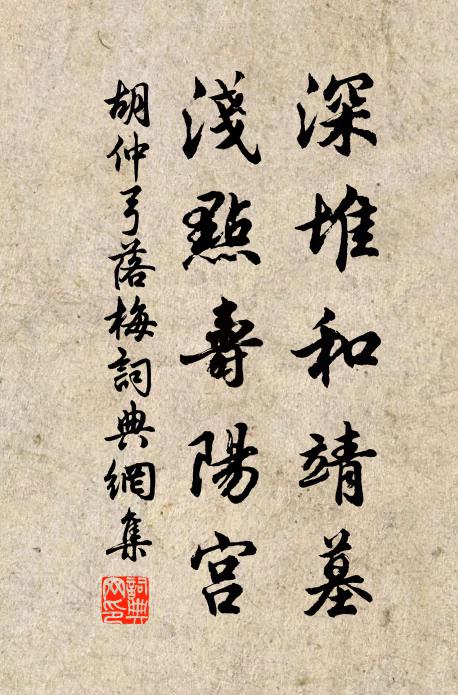 深堆和靖墓
淺點壽陽宮
胡仲弓落梅詞典網集
詞典網印